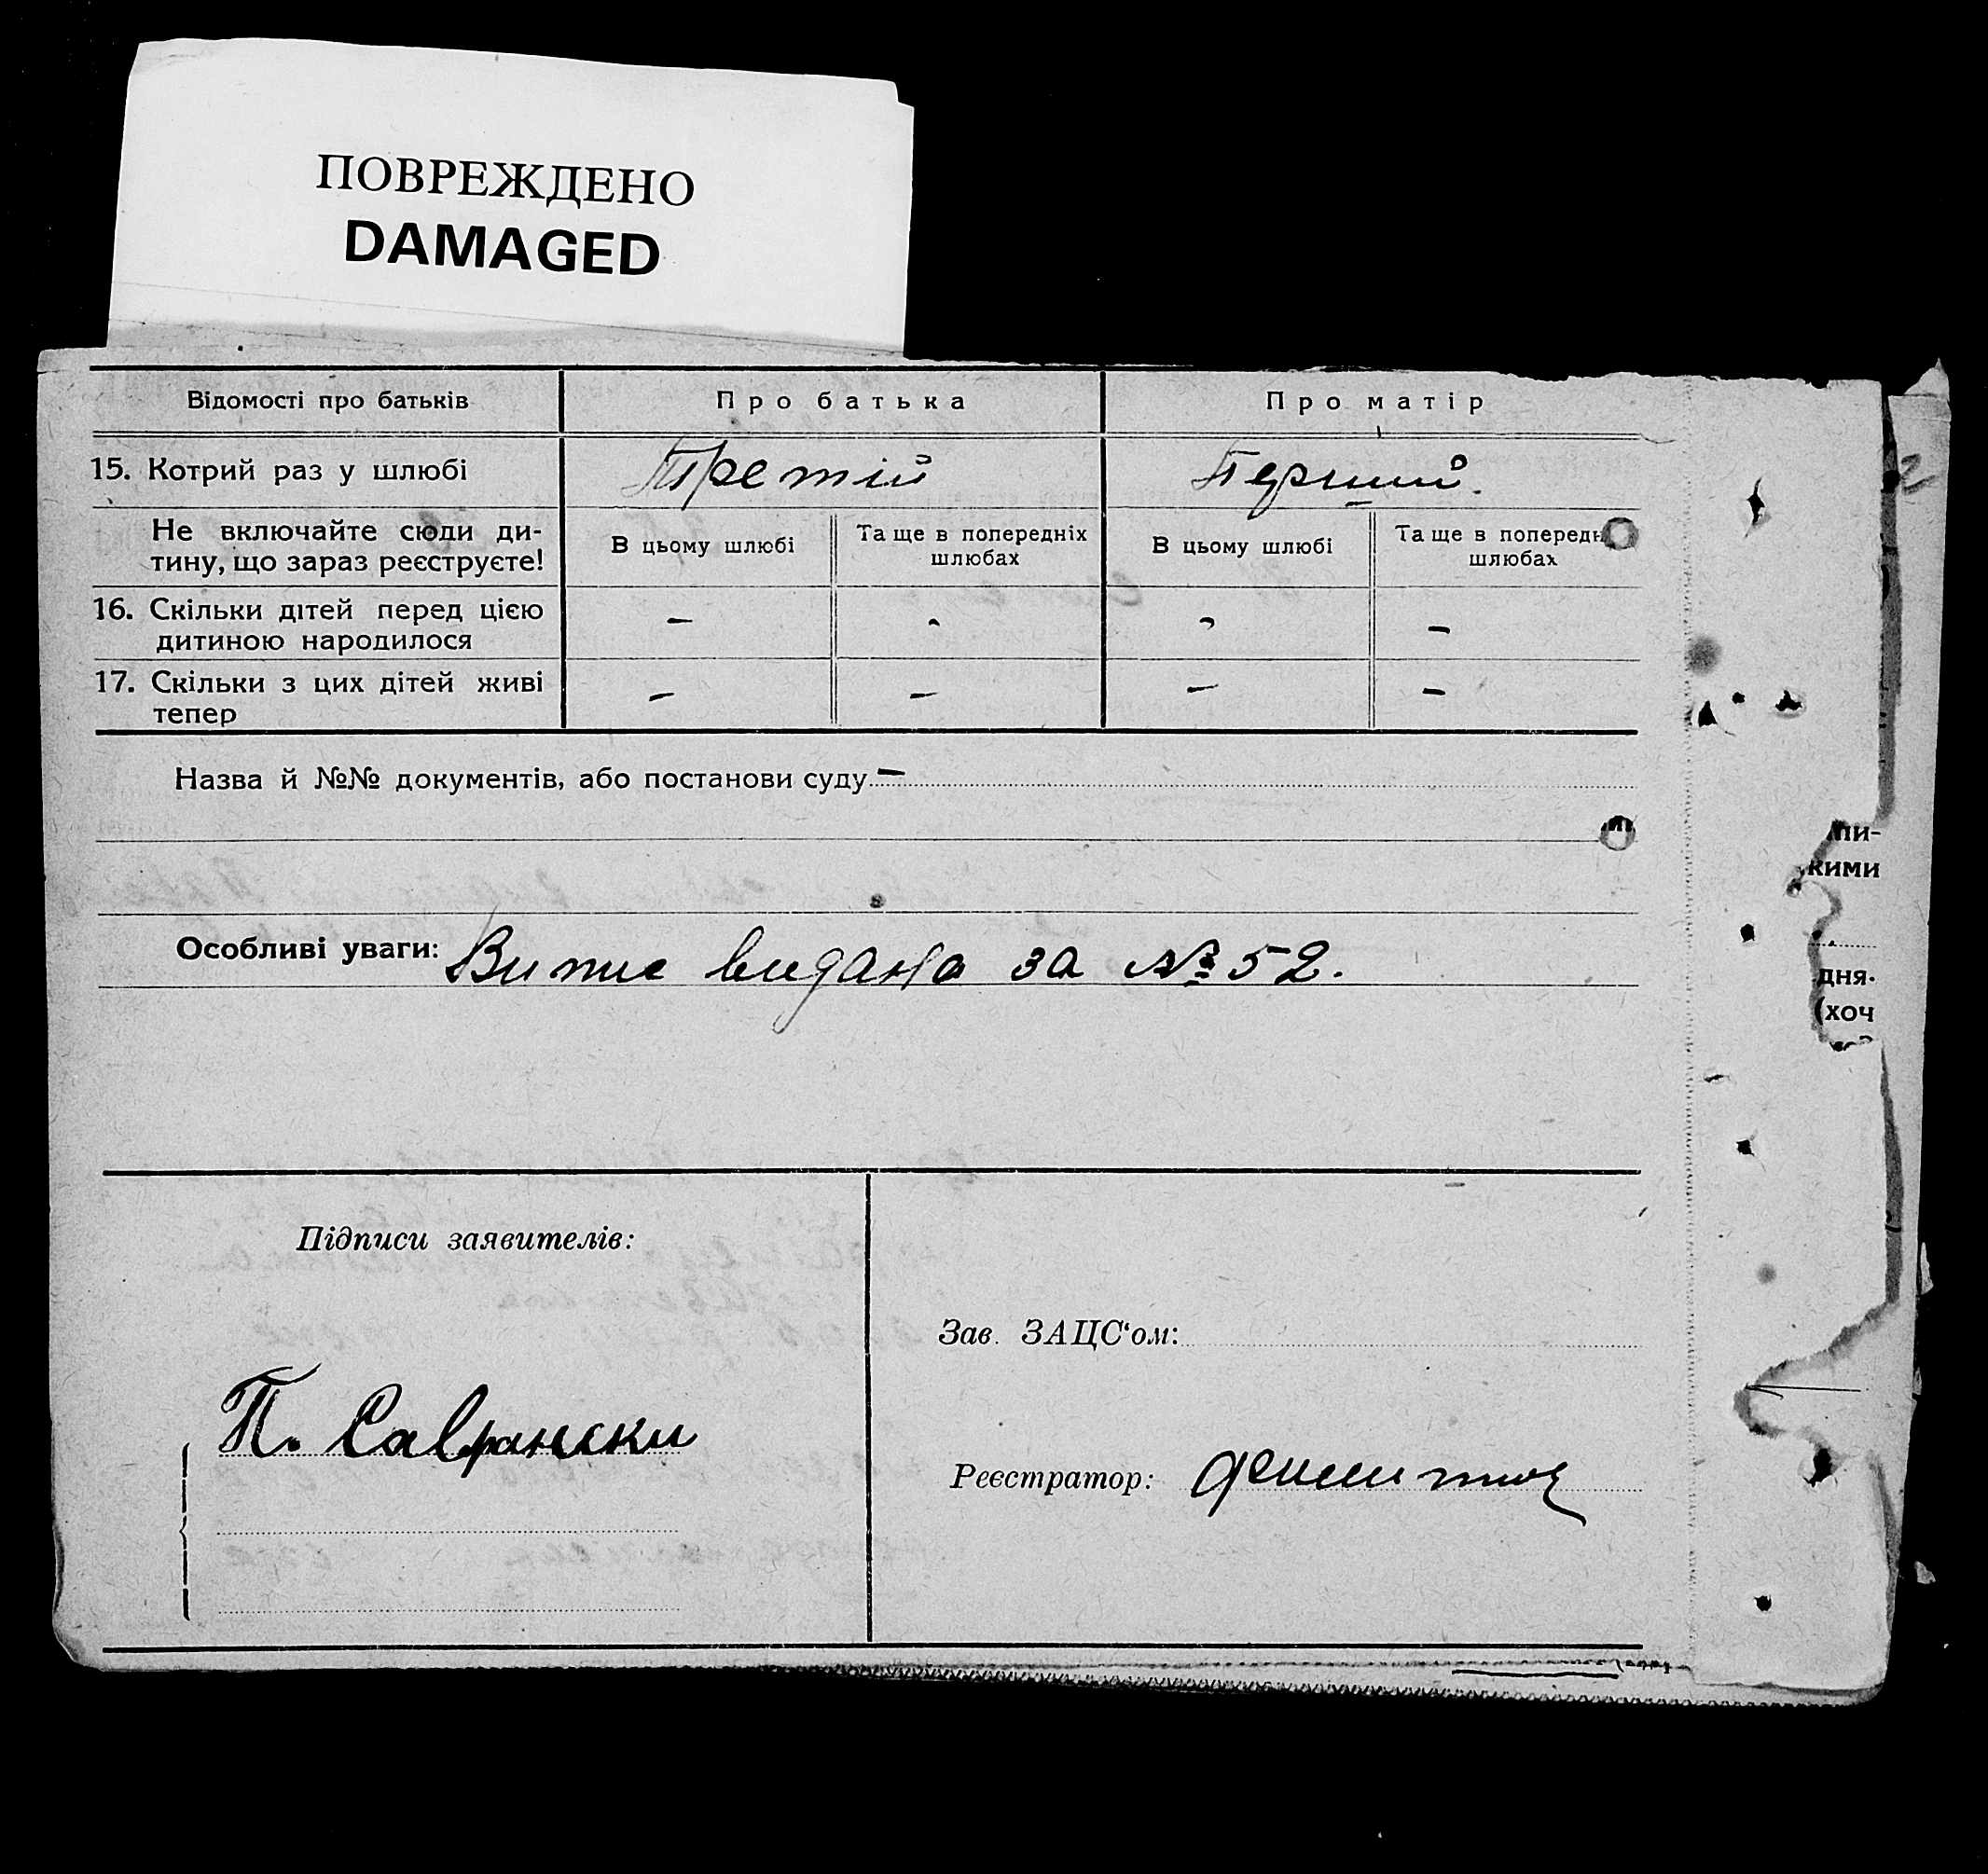 ПОВРЕЖДЕНО
DAMAGED
Відомості про батьків
Про батька
Про матір
15. Котрий раз у шлюбі
Третій
Перший.
Не включайте сюди ди-
тину, що зараз реєструєте!
В цьому шлюбі
Та ще в попередніх
шлюбах
В цьому шлюбі
Та ще в попередн
шлюбах
16. Скільки дітей перед цією
дитиною народилося
— - - —
17. Скільки з цих дітей живі
тепер
— — — —
Назва й №№ документів, або постанови суду —
Особливі уваги: Випис видано за № 52.
пи-
кими
дня-
(хоч
Підписи заявителів:
П. Саврански
Зав. ЗАЦС‘ом:
Реєстратор: